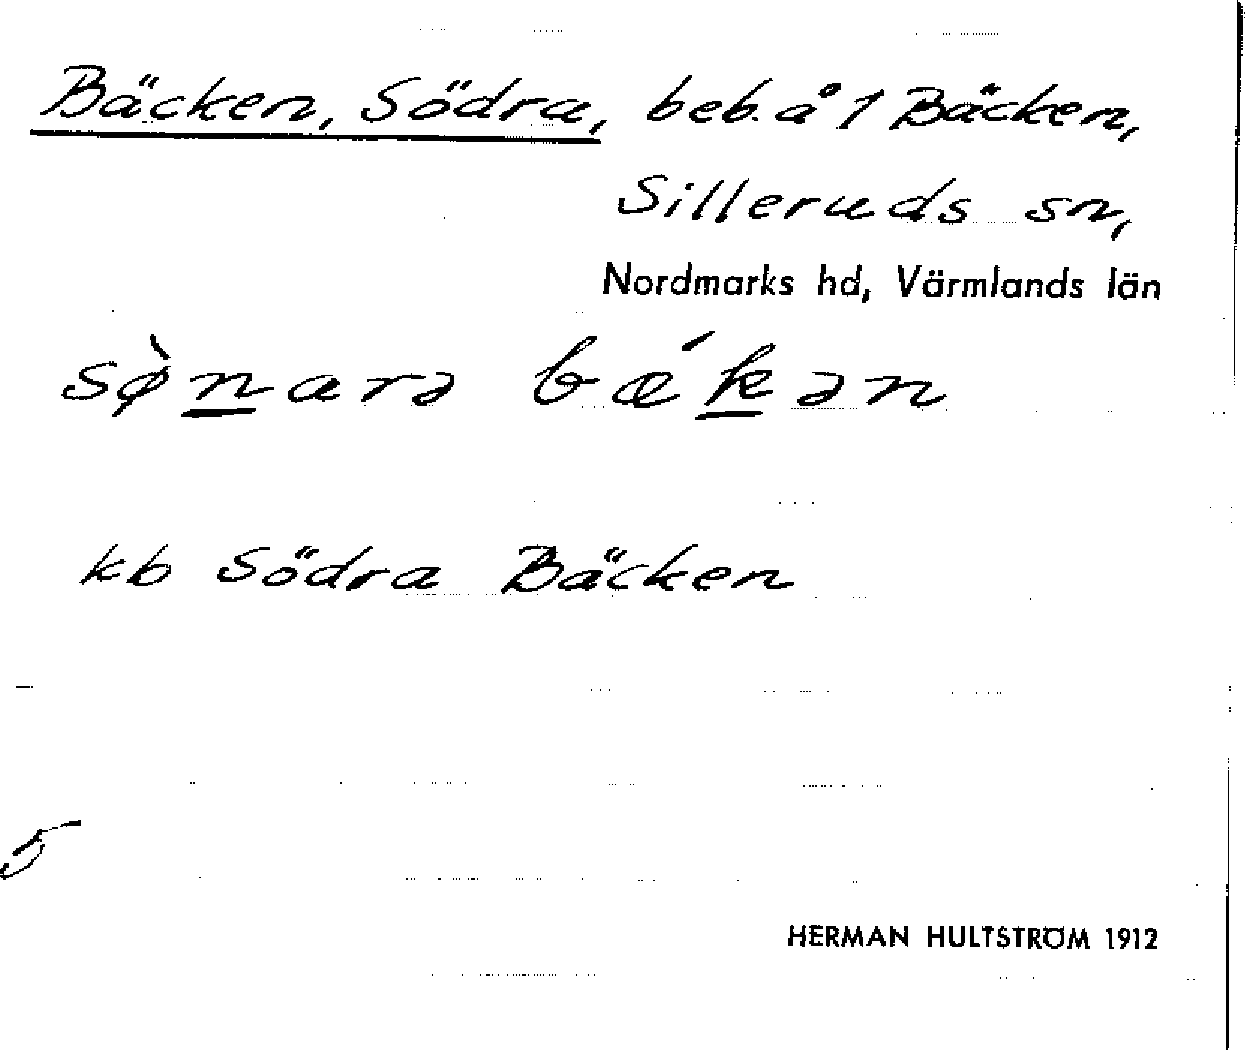 Bäcken, Södra, beb. å 1 Bäcken,
Silleruds sn,
Nordmarks hd, Värmlands län
sø̀n̲arə bǽk̲ən
kb Södra Bäcken
5
HERMAN HULTSTRÖM 1912